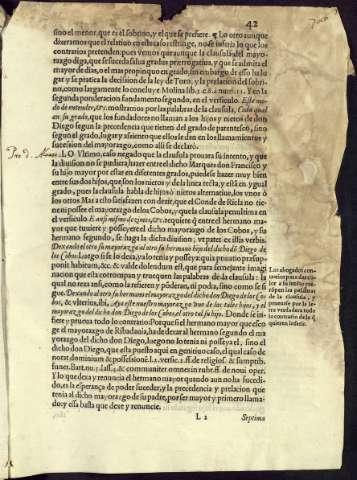 42
sino el menor, que es el sobrino, y el que se prefiere. ¶ Lo otro aunque
dixeramos que el relation en otra se restringe, no se infiria lo que los
contrarios pretenden: pues vemos que aunque la clausula del mayo-
razgo diga, que se suceda sus grados prerrogatiua, y que se admita el
mayor de dias, o el mas propinquo en grado, sin embargo de esso ha lu-
gar y se pratica la decision de la ley de Toro, y la prelacion del sobri-
no, como largamente lo concluye Molina lib. 3. c. 8. numer. 11. Y en la
segunda ponderacion fundamento segundo, en el versiculo. Este mo-
do de entender, &c. mostramos por las palabras de la clausula. Cada qual
en su grado, que los fundadores no llaman a los hijos y nietos de don
Diego segun la precedencia que tienen del grado de parentesco, sino
segun el grado, lugar y assiento que ellos le dan en los llamamientos y
succession del mayorazgo, como alli se declaró.
LO Vltimo, caso negado que la clausula prouara su intento, y que
la discussion no se pudiera hazer entre el dicho Marques don Francisco y
su hijo mayor por estar en diferentes grados, puedese hazer muy bien
entre sus dos hijos, que son los nietos y de la linea recta, y està en ygual
grado, pues la clausula habla de hijos ò nietos alternatiue, los vnos ò
los otros Mas a esto satisfazen con dezir, que el Conde de Ricla no tie-
ne ni possee el mayorazgo de los Cobos, y que la clausula penultima en
el versiculo. E ansi mismo dezimos, &c. requiere q̃ entre el hermano ma-
yor que tuuiere y posseyere el dicho mayorazgo de los Cobos, y su
hermano segundo, se haga la dicha diuision; vt patet ex illis verbis.
Dexando el otro su mayorazgo al otro su hermano hijo del dicho dõ Diego de
los Cobos: Luego si se lo dexa, ya lo tenia y posseya: quia priuatio præsup-
ponit habitum, &c. & valde defendum est, que para semejante imagi-
nacion que esta corrompan y trueque las palabras de la clausula: la
qual no reza assi, como la refieren y põderan, ni podia, sino como se se-
gue. Dexando al otro su hermano el mayorazgo del dicho don Diego de los Co-
bos, & vlterius, ibi, Aya este nuestro mayorazgo vno de los tales hijos, y el
mayorazgo del dicho don Diego de los Cobos, el otro tal su hijo. Donde se in-
fiere y prueua todo lo contrario. Porque si el hermano mayor que esco-
ge el mayorazgo de Ribadauia, ha de dexar al hermano segundo el ma-
yorazgo del dicho don Diego, luego no lo tenia ni posseya el, sino el
dicho don Diego, que esta puesto aqui en genitiuo caso, el qual caso de-
notat dominium & possessionem: l. 1. versic. 1. ff. de religiosi. & sumptib.
funer. Bart. nu. 1. Iass. 4. & communiter omnes in rubr. ff. de noui oper.
Y lo que dexa y renuncia el hermano mayor quando aun no ha sucedi-
do, es la esperança de poder suceder, y la precedencia y prelacion que
tenia al dicho mayorazgo de su padre, por ser mayor y primero llama-
do: y essa basta que dexe y renuncie.
L 2
Septimo